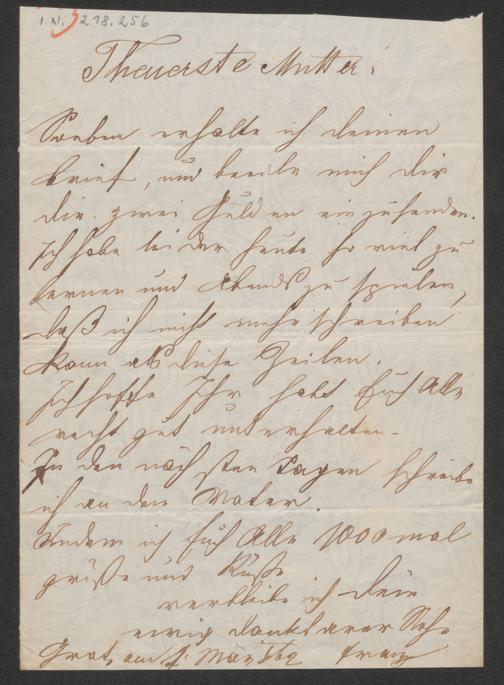 I.N. 218.256
Theuerste Mutter!
Soeben erhalte ich deinen
Brief, und beeile mich dir
die zwei Gulden einzusenden.
Ich habe leider heute so viel zu
lernen und Abends zu spielen,
daß ich nicht mehr schreiben
kann als diese Zeilen.
Ich hoffe Ihr habt Euch Alle
recht gut unterhalten.
In den nächsten Tagen schreibe
ich an den Vater.
Indem ich Euch Alle 1000mal
grüße und küße
verbleibe ich dein
ewig dankbarer Sohn
Graz, am März Franz